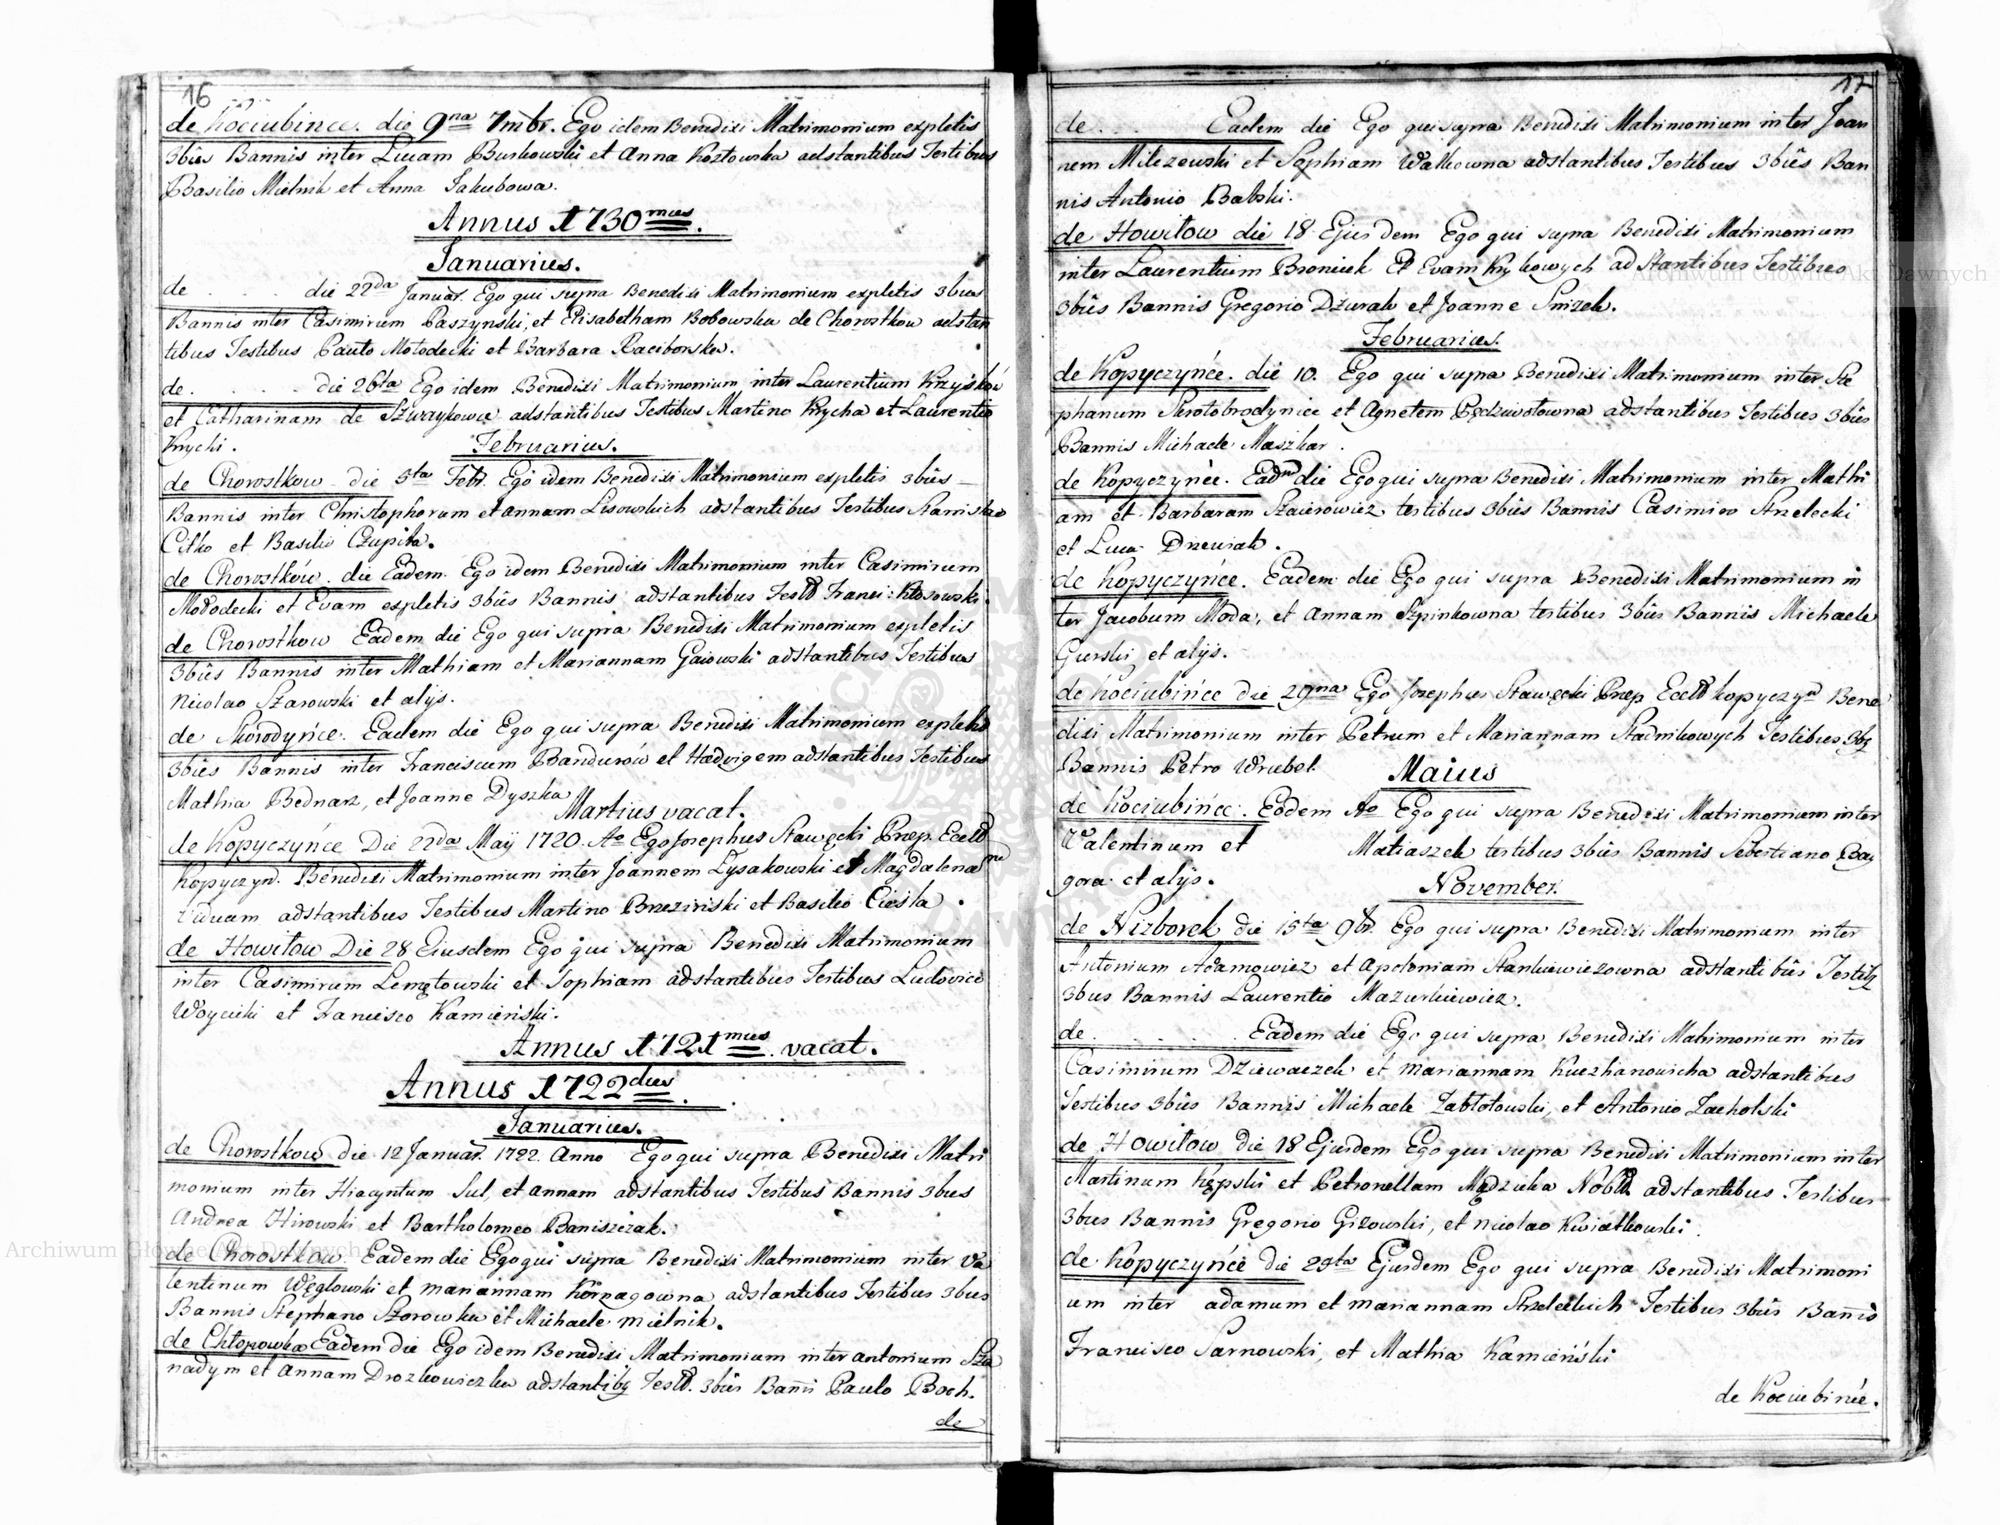 16
de Kociubince. die 9na 7mbr. Ego idem Benedixi Matrimonium expletis
3bus Bannis inter Lucam Burkowski et Anna Kozłowska adstantibus Testibus
Basilio Mielnik et Anna Jakubowa.
Annus 1730mus.
Januarius.
de . . . . die 22da Januar. Ego qui supra Benedixi Matrimonium expletis 3bus
Bannis inter Casimirum Paszynski, et Elisabetham Bobowska de Chorostkow adstan
tibus Testibus Paulo Mołodecki et Barbara Raciborska.
de . . . . die 26ta Ego idem Benedixi Matrimonium inter Laurentium
et Catharinam de Szwaykowce adstantibus Testibus Martino Krycha et Laurentio
Krycki.
Februarius.
de Chorostkow die 5ta Febr. Ego idem Benedixi Matrimonium expletis 3bus
Bannis inter Christophorum et annam Lisowskich adstantibus Testibus Stanislao
Citko et Basilio Czupiła.
de Chorostków. die Eadem. Ego idem Benedixi Matrimonium inter Casimirum
Mołodecki et Evam expletis 3bus Bannis adstantibus Testb Franci: Kłosowski.
de Chorostkow Eadem die Ego qui supra Benedixi Matrimonium expletis
3bus Bannis inter Mathiam et Mariannam Gaiowski adstantibus Testibus
Nicolao Szarowski et alijs.
de Skorodyńce. Eadem die Ego qui supra Benedixi Matrimonium expletis
3bus Bannis inter Franciscum Bandurów et Hedvigem adstantibus Testibus
Mathia Bednarz, et Joanne Dyszka
Martius vacat.
de Kopyczyńce Die 22da Maij 1720. Ao Ego Josephus Stawęcki Praep. Eccl
Kopyczyn. Benedixi Matrimonium inter Joannem Łysakowski et Magdalenam
viduam adstantibus Testibus Martino Brzezinski et Basilio Cieśla.
de Howiłow Die 28 Eiusdem Ego qui supra Benedixi Matrimonium
inter Casimirum Lemętowski et Sophiam adstantibus Testibus Ludovico
Woycicki et Francisco Kamieński.
Annus 1721mus vacat.
Annus 1722dus.
Januarius.
de Chorostkow die 12 Januar. 1722. Anno Ego qui supra Benedixi Matri
monium inter Hiacyntum Sul, et annam adstantibus Testibus Bannis 3bus
Andrea Hirowski et Bartholomeo Baniszczak.
de Chorostkow. Eadem die Ego qui supra Benedixi Matrimonium inter Va
lentinum Węglowski et mariannam Kornagowna adstantibus Testibus 3bus
Bannis Stephano Szorowka et Michaele mielnik.
de Chłopowka Eadem die Ego idem Benedixi Matrimonium inter antonium Sza
nadym et annam Drozkowiczka adstantibq Testb. 3bus Bañi Paulo Boch.
de
17
de . . . Eadem die Ego qui supra Benedixi Matrimonium inter Joan
nem Milczewski et Sophiam Wałkowna adstantibus Testibus 3bus Ban
nis Antonio Babski.
de Howiłow die 18 Ejusdem Ego qui supra Benedixi Matrimonium
inter Laurentium Broniek Et Evam Krykowych adstantibus Testibus
3bus Bannis Gregorio Dżurak et Joanne Snizek.
Februarius.
de Kopyczyńce. die 10. Ego qui supra Benedixi Matrimonium inter Ste
phanum et Agnetem adstantibus Testibus 3bus
Bannis Michaele Maszkar.
de Kopyczyńce. Eadm die Ego qui supra Benedixi Matrimonium inter Mathi
am et Barbaram Szaierowicz testibus 3bus Bannis Casimiro Strzelecki
et Luca Drewiak.
de Kopyczyńce. Eadem die Ego qui supra Benedixi Matrimonium in
ter Jacobum Moda, et Annam Szpinkowna testibus 3bus Bannis Michaele
Gurski et alijs.
de Kociubińce die 29na Ego Josephus Stawęcki Praep Eccl Kopyczyn Bene
dixi Matrimonium inter Petrum et Mariannam Stadnikowych Testibus 3bq
Bannis Petro Wrubel.
Maius
de Kociubińce. Eodem Ao Ego qui supra Benedixi Matrimonium inter
Valentinum et Matiaszek testibus 3bus Bannis Sebestiano Ba
gora et alijs.
November.
de Nizborek die 15ta 9br. Ego qui supra Benedixi Matrimonium inter
Antonium Adamowicz et Apoloniam Stankiewiczowna adstantibus Testibq
3bus Bannis Laurentio Mazurkiewicz.
de . . . . . Eadem die Ego qui supra Benedixi Matrimonium inter
Casimirum Dziewaczek et mariannam Kuczhanowicha adstantibus
Testibus 3bus Bannis Michaele Zabłotowski, et Antonio Zacholski
de Howiłow die 18 Ejusdem Ego qui supra Benedixi Matrimonium inter
Martinum Kępski et Petronellam Mądzicka Nobb. adstantibus Testibus
3bus Bannis Gregorio Gizowski, et Nicolao Kwiatkowski.
de Kopyczyńce die 29ta Ejusdem Ego qui supra Benedixi Matrimoni
um inter adamum et mariannam Strzeleckich Testibus 3bus Bañis
Francisco Sarnowski, et Mathia Kamieński
de Kociubińce.
Archiwum Główne Akt Dawnych
Archiwum Główne Akt Dawnych